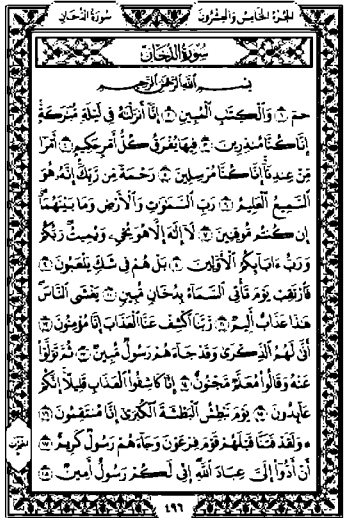 الجزء الخامس والعشرون
سورة الدخان
سُورَةُ الدُّخَانِ
بِسْمِ اللَّهِ الرَّحْمَٰنِ الرَّحِيمِ
حمٓ ١ وَالْكِتَٰبِ الْمُبِينِ ٢ إِنَّا أَنزَلْنَٰهُ فِي لَيْلَةٍ مُّبَٰرَكَةٍ
إِنَّا كُنَّا مُنذِرِينَ ٣ فِيهَا يُفْرَقُ كُلُّ أَمْرٍ حَكِيمٍ ٤ أَمْرًا
مِّنْ عِندِنَا إِنَّا كُنَّا مُرْسِلِينَ ٥ رَحْمَةً مِّن رَّبِّكَ إِنَّهُ هُوَ
السَّمِيعُ الْعَلِيمُ ٦ رَبِّ السَّمَٰوَٰتِ وَالْأَرْضِ وَمَا بَيْنَهُمَا
إِن كُنتُم مُّوقِنِينَ ٧ لَا إِلَٰهَ إِلَّا هُوَ يُحْيِي وَيُمِيتُ رَبُّكُمْ
وَرَبُّ ءَابَائِكُمُ الْأَوَّلِينَ ٨ بَلْ هُمْ فِي شَكٍّ يَلْعَبُونَ ٩
فَارْتَقِبْ يَوْمَ تَأْتِي السَّمَاءُ بِدُخَانٍ مُّبِينٍ ١٠ يَغْشَى النَّاسَ
هَٰذَا عَذَابٌ أَلِيمٌ ١١ رَّبَّنَا اكْشِفْ عَنَّا الْعَذَابَ إِنَّا مُؤْمِنُونَ ١٢
أَنَّىٰ لَهُمُ الذِّكْرَىٰ وَقَدْ جَاءَهُمْ رَسُولٌ مُّبِينٌ ١٣ ثُمَّ تَوَلَّوْا
عَنْهُ وَقَالُوا مُعَلَّمٌ مَّجْنُونٌ ١٤ إِنَّا كَاشِفُوا الْعَذَابِ قَلِيلًا إِنَّكُمْ
عَائِدُونَ ١٥ يَوْمَ نَبْطِشُ الْبَطْشَةَ الْكُبْرَىٰ إِنَّا مُنتَقِمُونَ ١٦
۞ وَلَقَدْ فَتَنَّا قَبْلَهُمْ قَوْمَ فِرْعَوْنَ وَجَاءَهُمْ رَسُولٌ كَرِيمٌ ١٧
أَنْ أَدُّوا إِلَيَّ عِبَادَ اللَّهِ إِنِّي لَكُمْ رَسُولٌ أَمِينٌ ١٨
٤٩٦